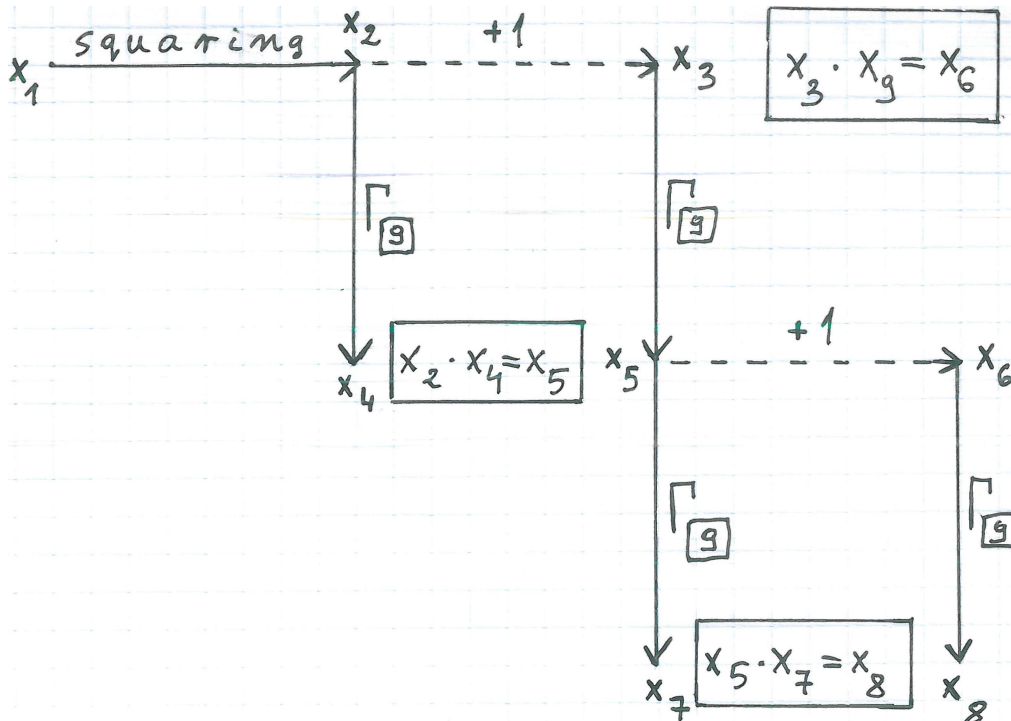 squaring x₂ +1
x₁ x₃ x₃ · x₉ = x₆
Γ 9 Γ 9
+1
x₄ x₂ · x₄ = x₅ x₅ x₆
Γ 9 Γ 9
x₇ x₅ · x₇ = x₈ x₈